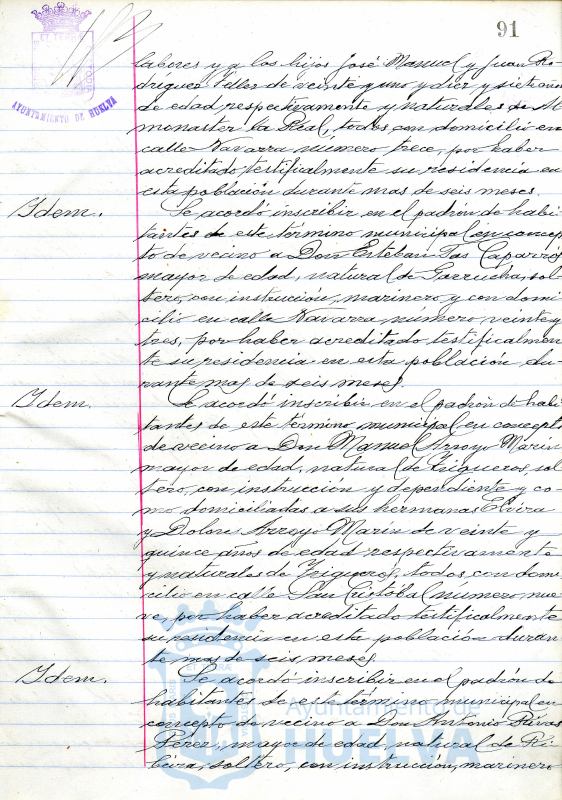 91
AYUNTAMIENTO DE HUELVA
labores y a los hijos José Manuel y Juan Ro-
driguez Villes de veinte y uno y diez y siete años
de edad respectivamente y naturales de Al-
monaster la Real, todos con domicilio en
calle Navarra número trece, por haber
acreditado testificalmente su residencia en
esta población durante mas de seis meses.
Idem.
Se acordó inscribir en el padrón de habi-
tantes de este término municipal en concep-
to de vecino a Don Esteban Caparrós
mayor de edad, natural de Garrucha, sol-
tero, con instrucción, marinero y con domi-
cilio en calle Navarra número veinte y
tres, por haber acreditado testificalmen-
te su residencia en esta población du-
rante mas de seis meses.
Idem.
Se acordó inscribir en el padrón de habi-
tantes de este término municipal en concepto
de vecino a Don Manuel Arroyo Marín
mayor de edad, natural de Trigueros, sol-
tero, con instrucción y dependiente y co-
mo domiciliadas a sus hermanas Elvira
y Dolores Arroyo Marín de veinte y
quince años de edad respectivamente
y naturales de Trigueros, todos con domi-
cilio en calle San Cristóbal número nue-
ve por haber acreditado testificalmente
su residencia en esta población duran-
te mas de seis meses.
Idem.
Se acordó inscribir en el padrón de
habitantes de este término municipal en
concepto de vecino a Don Antonio Rivas
Pérez, mayor de edad, natural de Ri-
beira, soltero, con instrucción, marinero
Ayuntamiento de
HUELVA